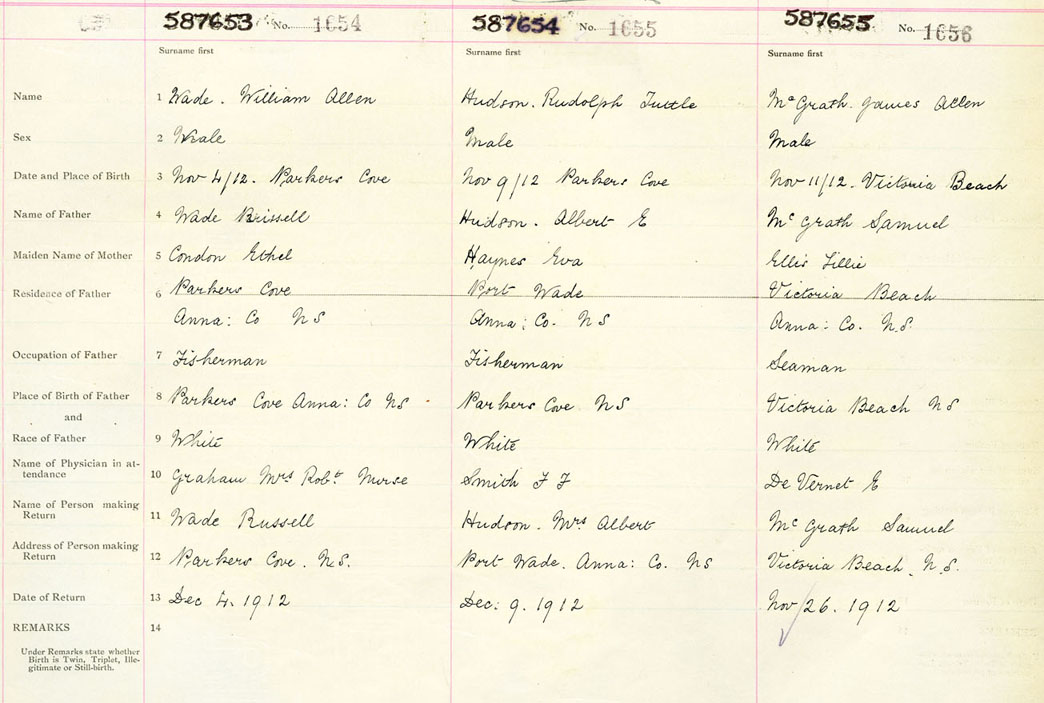 587653 No. 1654 587654 No. 1655 587655 No. 1656
Surname first Surname first Surname first
Name 1 Wade. William Allen Hudson. Rudolph Tuttle McGrath. James Allen
Sex 2 Male Male Male
Date and Place of Birth 3 Nov 4/12. Parkers Cove Nov 9/12 Parkers Cove Nov 11/12. Victoria Beach
Name of Father 4 Wade Brissell Hudson. Albert E McGrath Samuel
Maiden Name of Mother 5 Condon Ethel Haynes Eva Ellis Lillie
Residence of Father 6 Parkers Cove Port Wade Victoria Beach
Anna: Co NS Anna: Co. NS Anna: Co. N.S.
Occupation of Father 7 Fisherman Fisherman Seaman
Place of Birth of Father 8 Parkers Cove Anna: Co NS Parkers Cove NS Victoria Beach NS
and
Race of Father 9 White White White
Name of Physician in at-
tendance 10 Graham Mrs Robt Nurse Smith F F De Vernet E
Name of Person making
Return 11 Wade Russell Hudson. Mrs Albert McGrath Samuel
Address of Person making
Return 12 Parkers Cove. N.S. Port Wade. Anna: Co. NS Victoria Beach. N.S.
Date of Return 13 Dec 4. 1912 Dec: 9. 1912 Nov 26. 1912
REMARKS 14
Under Remarks state whether
Birth is Twin, Triplet, Ille-
gitimate or Still-birth.